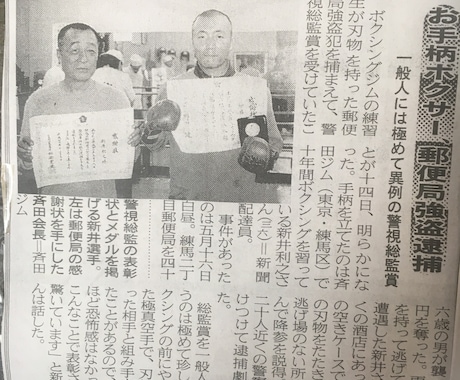 お手柄ボクサー 郵便局強盗逮捕
一般人には極めて異例の警視総監賞
ボクシングジムの練習
生が刃物を持った郵便
局強盗犯を捕まえて、警
視総監賞を受けていたこ
とが十四日、明らかにな
った。手柄を立てたのは斉
田ジム（東京・練馬区）で
十年間ボクシングを習って
いる新井利之さ
ん＝新聞
配達員。
事件があった
のは五月十六日
白昼。練馬二丁
目郵便局を四十
六歳の男が襲
円を奪った。
を持って逃げ
遭遇した新井さ
くの酒店にあっ
の空きケースで
の刃物をたたき
逃げ場のない所
んで降参を説得
二十人近くの警
けつけて逮捕劇
た。
総監賞を一般人
うのは極めて珍し
クシングの前にや
た極真空手で、刃
った相手と組み手
たことがあるので
ほど恐怖感はなか
こんなことで表彰さ
驚いています」と新
んは話した。
警視総監の表彰
状とメダルを掲
げる新井選手。
左は郵便局の感
謝状を手にした
斉田会長＝斉田
ジム
感謝状